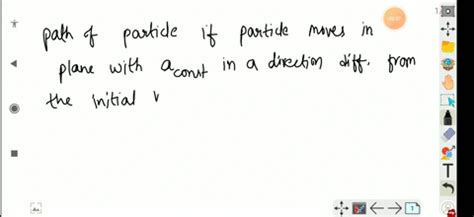 path of particle if particle moves in
plane with a const in a direction diff. from
the initial